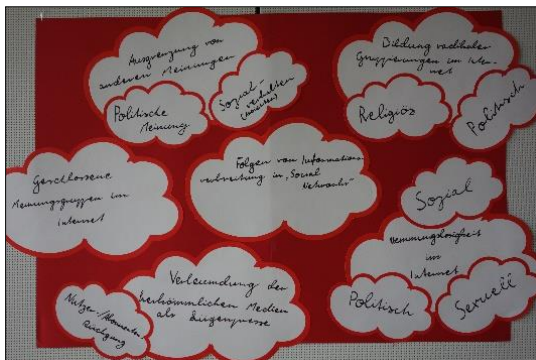 Ausgrenzung von
anderen Meinungen
Politische
Meinung
Sozial-
verhalten
Bildung radikaler
Gruppierungen im Inter-
net
Religiös
Politisch
Geschlossene
Meinungsgruppen im
Internet
Folgen von Informations-
verbreitung in "Social
Networks"
Sozial
Hemmungslosigkeit
im
Internet
Politisch
Sexuell
Verleumdung der
herkömmlichen Medien
als Lügenpresse
Nutzer-/Abonnenten-
Rückgang